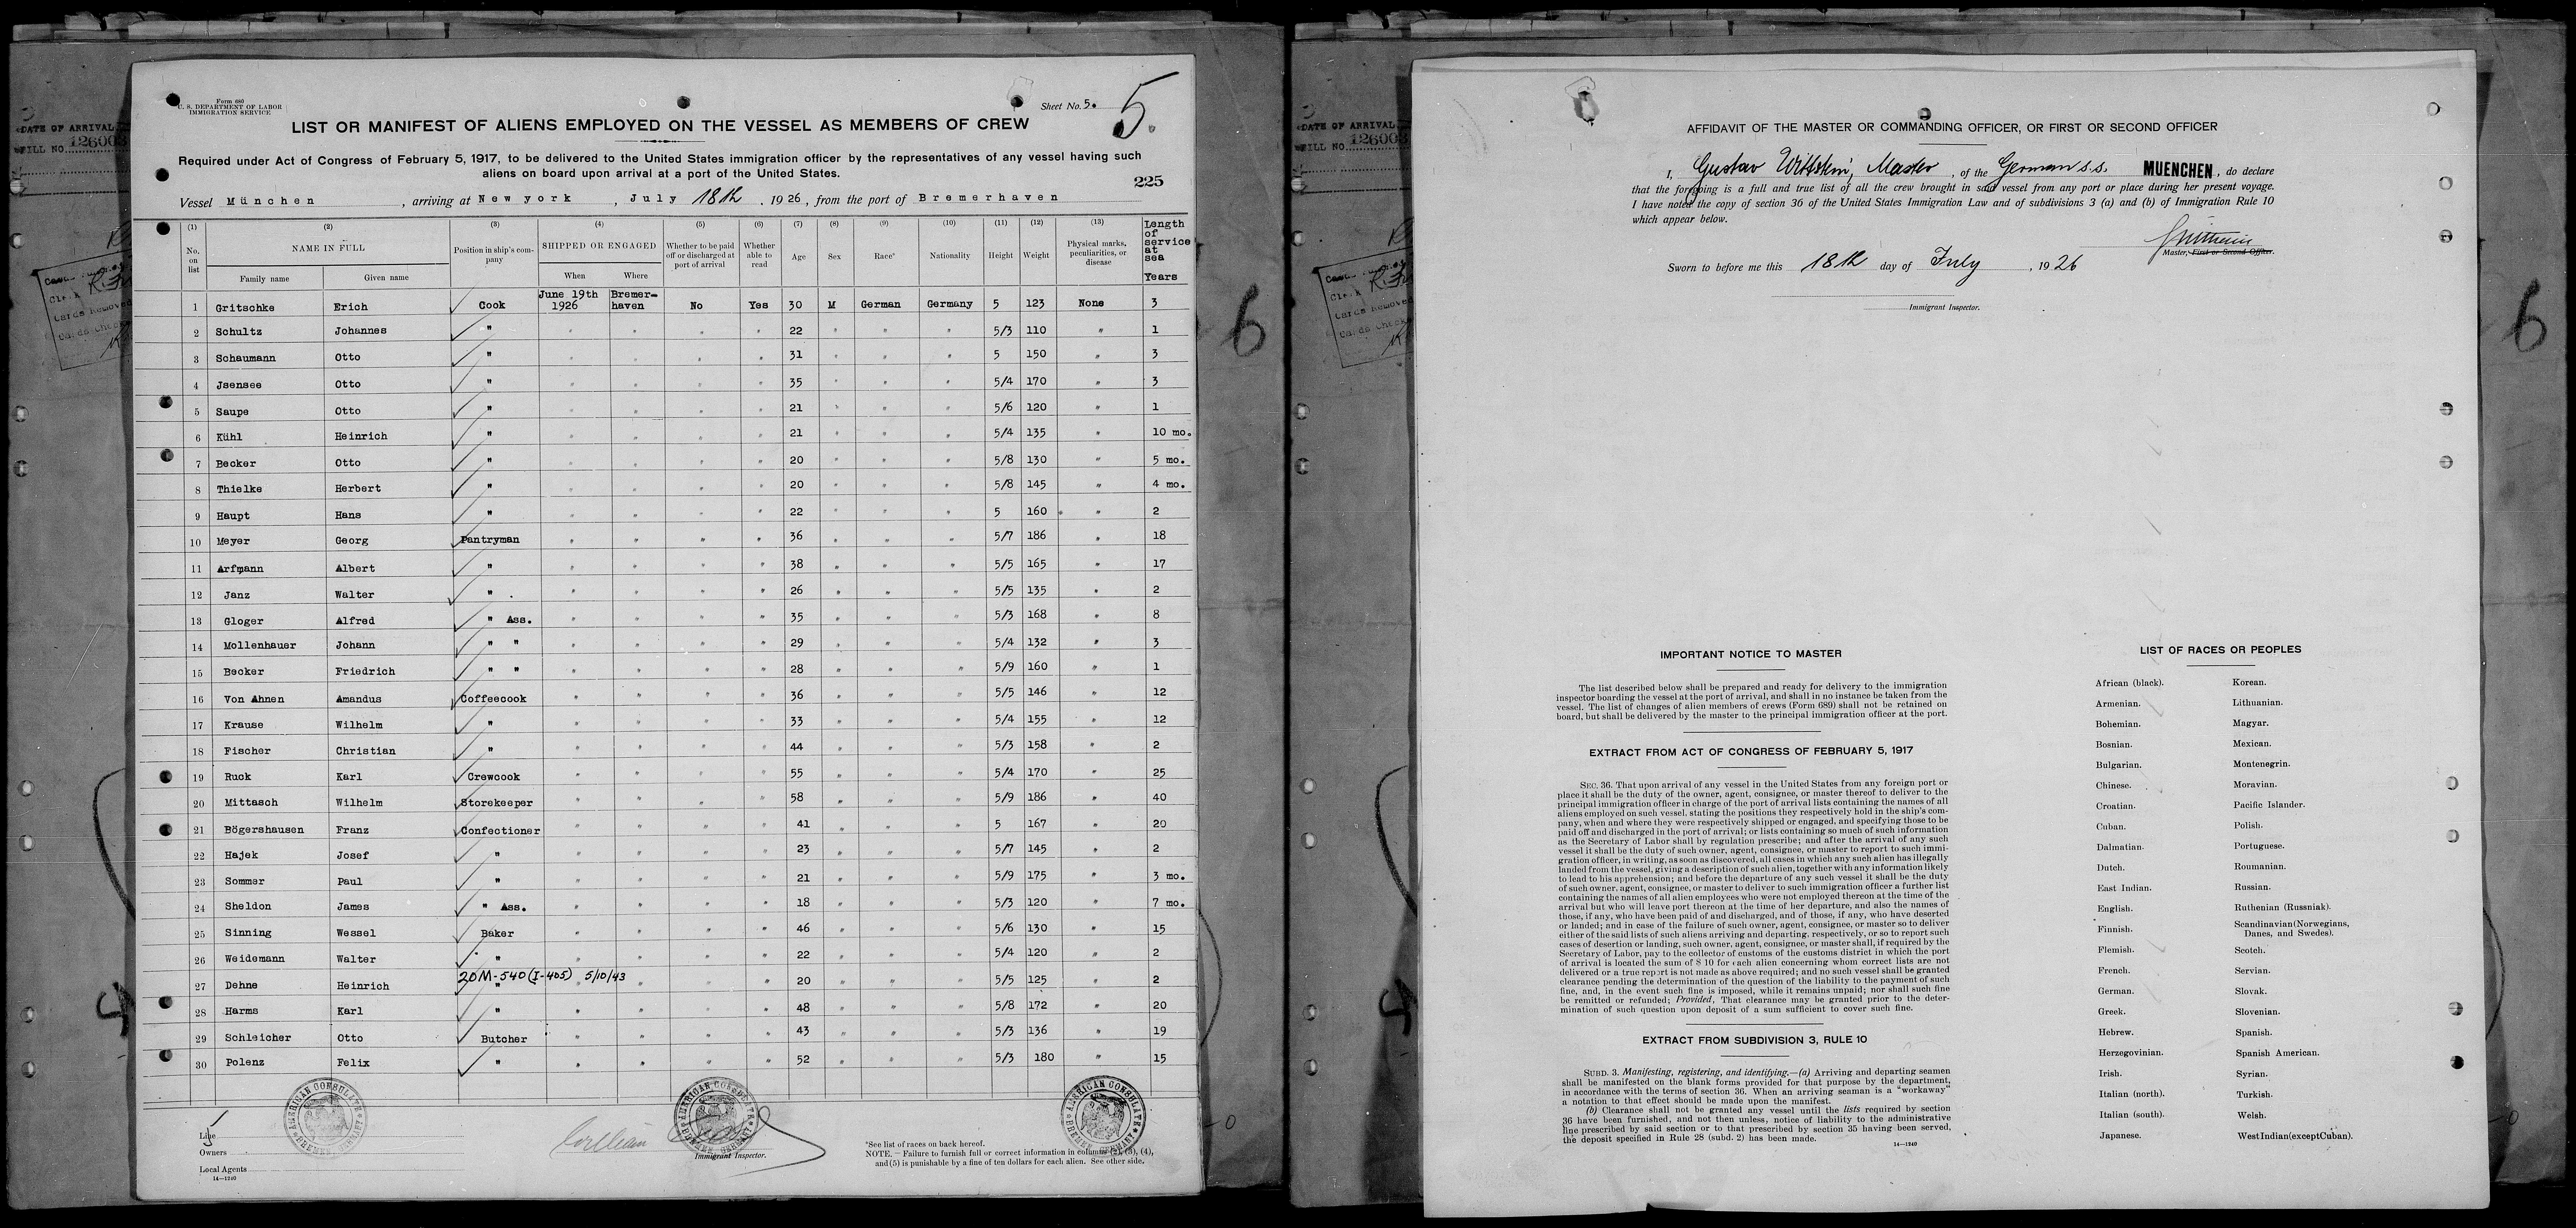 Form 680
U. S. DEPARTMENT OF LABOR
IMMIGRATION SERVICE
Sheet No. 5.
5.
LIST OR MANIFEST OF ALIENS EMPLOYED ON THE VESSEL AS MEMBERS OF CREW
Required under Act of Congress of February 5, 1917, to be delivered to the United States immigration officer by the representatives of any vessel having such
aliens on board upon arrival at a port of the United States.
225
Vessel München, arriving at New york, July 18th, 1926, from the port of Bremerhaven
(1) (2) (3) (4) (5) (6) (7) (8) (9) (10) (11) (12) (13)
No. on list NAME IN FULL Family name Given name Position in ship's company SHIPPED OR ENGAGED When Where Whether to be paid off or discharged at port of arrival Whether able to read Age Sex Race* Nationality Height Weight Physical marks, peculiarities, or disease Length of service at sea Years
1 Gritschke Erich Cook June 19th 1926 Bremer-haven No Yes 30 M German Germany 5 123 None 3
2 Schultz Johannes " " " " " 22 " " " 5/3 110 " 1
3 Schaumann Otto " " " " " 31 " " " 5 150 " 3
4 Jsensee Otto " " " " " 35 " " " 5/4 170 " 3
5 Saupe Otto " " " " " 21 " " " 5/6 120 " 1
6 Kühl Heinrich " " " " " 21 " " " 5/4 135 " 10 mo.
7 Becker Otto " " " " " 20 " " " 5/8 130 " 5 mo.
8 Thielke Herbert " " " " " 20 " " " 5/8 145 " 4 mo.
9 Haupt Hans " " " " " 22 " " " 5 160 " 2
10 Meyer Georg Pantryman " " " " 36 " " " 5/7 186 " 18
11 Arfmann Albert " " " " " 38 " " " 5/5 165 " 17
12 Janz Walter " " " " " 26 " " " 5/5 135 " 2
13 Gloger Alfred " Ass. " " " " 35 " " " 5/3 168 " 8
14 Mollenhauer Johann " " " " " " 29 " " " 5/4 132 " 3
15 Becker Friedrich " " " " " " 28 " " " 5/9 160 " 1
16 Von Ahnen Amandus Coffeecook " " " " 36 " " " 5/5 146 " 12
17 Krause Wilhelm " " " " " 33 " " " 5/4 155 " 12
18 Fischer Christian " " " " " 44 " " " 5/3 158 " 2
19 Ruck Karl Crewcook " " " " 55 " " " 5/4 170 " 25
20 Mittasch Wilhelm Storekeeper " " " " 58 " " " 5/9 186 " 40
21 Bögershausen Franz Confectioner " " " " 41 " " " 5 167 " 20
22 Hajek Josef " " " " " 23 " " " 5/7 145 " 2
23 Sommer Paul " " " " " 21 " " " 5/9 175 " 3 mo.
24 Sheldon James " Ass. " " " " 18 " " " 5/3 120 " 7 mo.
25 Sinning Wessel Baker " " " " 46 " " " 5/6 130 " 15
26 Weidemann Walter " " " " " 22 " " " 5/4 120 " 2
20M-540 (I-405) 5/10/43
27 Dehne Heinrich " " " " " 20 " " " 5/5 125 " 2
28 Harms Karl " " " " " 48 " " " 5/8 172 " 20
29 Schleicher Otto Butcher " " " " 43 " " " 5/3 136 " 19
30 Polenz Felix " " " " " 52 " " " 5/3 180 " 15
AMERICAN CONSULATE BREMEN, GERMANY
AMERICAN CONSULATE BREMEN, GERMANY
AMERICAN CONSULATE BREMEN, GERMANY
Line
Owners
Local Agents
14—1240
Immigrant Inspector.
*See list of races on back hereof.
NOTE. – Failure to furnish full or correct information in columns (2), (3), (4),
and (5) is punishable by a fine of ten dollars for each alien. See other side.
DATE OF ARRIVAL
FILL NO. 126003
6
DATE OF ARRIVAL
FILL NO. 126003
AFFIDAVIT OF THE MASTER OR COMMANDING OFFICER, OR FIRST OR SECOND OFFICER
I, Gustav Wittstein, Master, of the German s.s. MUENCHEN, do declare
that the foregoing is a full and true list of all the crew brought in said vessel from any port or place during her present voyage.
I have noted the copy of section 36 of the United States Immigration Law and of subdivisions 3 (a) and (b) of Immigration Rule 10
which appear below.
Master, First or Second Officer.
Sworn to before me this 18th day of July, 1926
Immigrant Inspector.
6
IMPORTANT NOTICE TO MASTER
The list described below shall be prepared and ready for delivery to the immigration
inspector boarding the vessel at the port of arrival, and shall in no instance be taken from the
vessel. The list of changes of alien members of crews (Form 689) shall not be retained on
board, but shall be delivered by the master to the principal immigration officer at the port.
EXTRACT FROM ACT OF CONGRESS OF FEBRUARY 5, 1917
SEC. 36. That upon arrival of any vessel in the United States from any foreign port or
place it shall be the duty of the owner, agent, consignee, or master thereof to deliver to the
principal immigration officer in charge of the port of arrival lists containing the names of all
aliens employed on such vessel, stating the positions they respectively hold in the ship's com-
pany, when and where they were respectively shipped or engaged, and specifying those to be
paid off and discharged in the port of arrival; or lists containing so much of such information
as the Secretary of Labor shall by regulation prescribe; and after the arrival of any such
vessel it shall be the duty of such owner, agent, consignee, or master to report to such immi-
gration officer, in writing, as soon as discovered, all cases in which any such alien has illegally
landed from the vessel, giving a description of such alien, together with any information likely
to lead to his apprehension; and before the departure of any such vessel it shall be the duty
of such owner, agent, consignee, or master to deliver to such immigration officer a further list
containing the names of all alien employees who were not employed thereon at the time of the
arrival but who will leave port thereon at the time of her departure, and also the names of
those, if any, who have been paid of and discharged, and of those, if any, who have deserted
or landed; and in case of the failure of such owner, agent, consignee, or master so to deliver
either of the said lists of such aliens arriving and departing, respectively, or so to report such
cases of desertion or landing, such owner, agent, consignee, or master shall, if required by the
Secretary of Labor, pay to the collector of customs of the customs district in which the port
of arrival is located the sum of $ 10 for each alien concerning whom correct lists are not
delivered or a true report is not made as above required; and no such vessel shall be granted
clearance pending the determination of the question of the liability to the payment of such
fine, and, in the event such fine is imposed, while it remains unpaid; nor shall such fine
be remitted or refunded; Provided, That clearance may be granted prior to the deter-
mination of such question upon deposit of a sum sufficient to cover such fine.
EXTRACT FROM SUBDIVISION 3, RULE 10
SUBD. 3. Manifesting, registering, and identifying.—(a) Arriving and departing seamen
shall be manifested on the blank forms provided for that purpose by the department,
in accordance with the terms of section 36. When an arriving seaman is a "workaway"
a notation to that effect should be made upon the manifest.
(b) Clearance shall not be granted any vessel until the lists required by section
36 have been furnished, and not then unless, notice of liability to the administrative
fine prescribed by said section or to that prescribed by section 35 having been served,
the deposit specified in Rule 28 (subd. 2) has been made.
14—1240
LIST OF RACES OR PEOPLES
African (black).
Armenian.
Bohemian.
Bosnian.
Bulgarian.
Chinese.
Croatian.
Cuban.
Dalmatian.
Dutch.
East Indian.
English.
Finnish.
Flemish.
French.
German.
Greek.
Hebrew.
Herzegovinian.
Irish.
Italian (north).
Italian (south).
Japanese.
Korean.
Lithuanian.
Magyar.
Mexican.
Montenegrin.
Moravian.
Pacific Islander.
Polish.
Portuguese.
Roumanian.
Russian.
Ruthenian (Russniak).
Scandinavian (Norwegians,
Danes, and Swedes).
Scotch.
Servian.
Slovak.
Slovenian.
Spanish.
Spanish American.
Syrian.
Turkish.
Welsh.
West Indian (except Cuban).